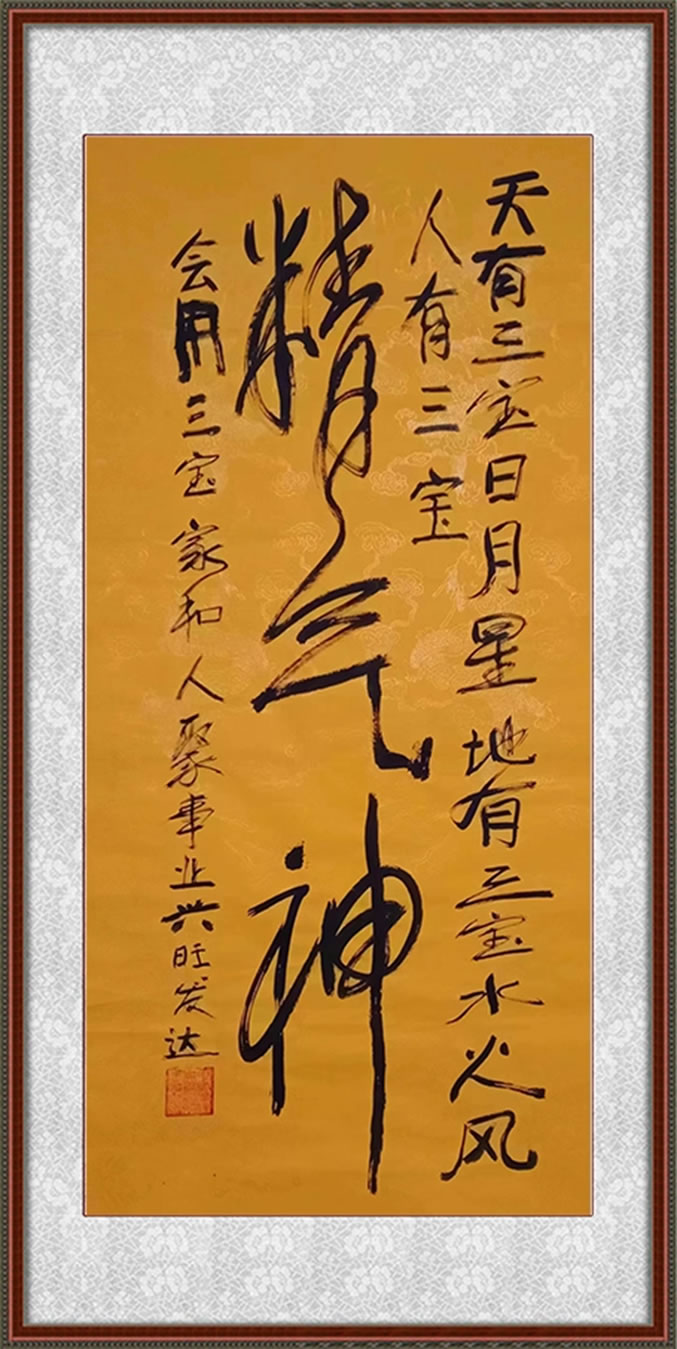 天有三宝日月星地有三宝水火风
人有三宝
精气神
会用三宝家和人聚事业兴旺发达